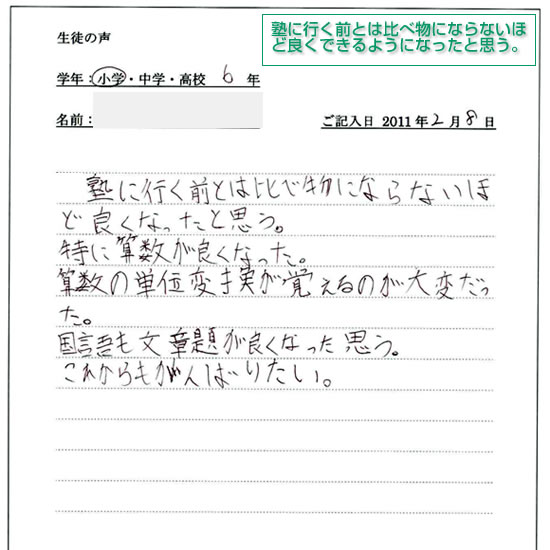 生徒の声
塾に行く前とは比べ物にならないほ
ど良くできるようになったと思う。
学年：小学・中学・高校 6 年
名前：
ご記入日 2011年2月8日
塾に行く前とは比べ物にならないほ
ど良くなったと思う。
特に算数が良くなった。
算数の単位変換が覚えるのが大変だっ
た。
国語も文章題が良くなった思う。
これからもがんばりたい。